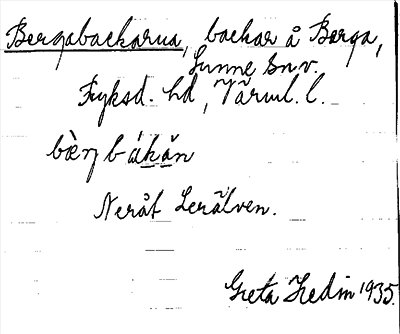 Bergabackarna, backar å Berga,
Sunne sn v.
Fryksd. hd, Värml. l.
bæ̀ŋbákăn
Neråt Lerälven.
Greta Hedin 1935.